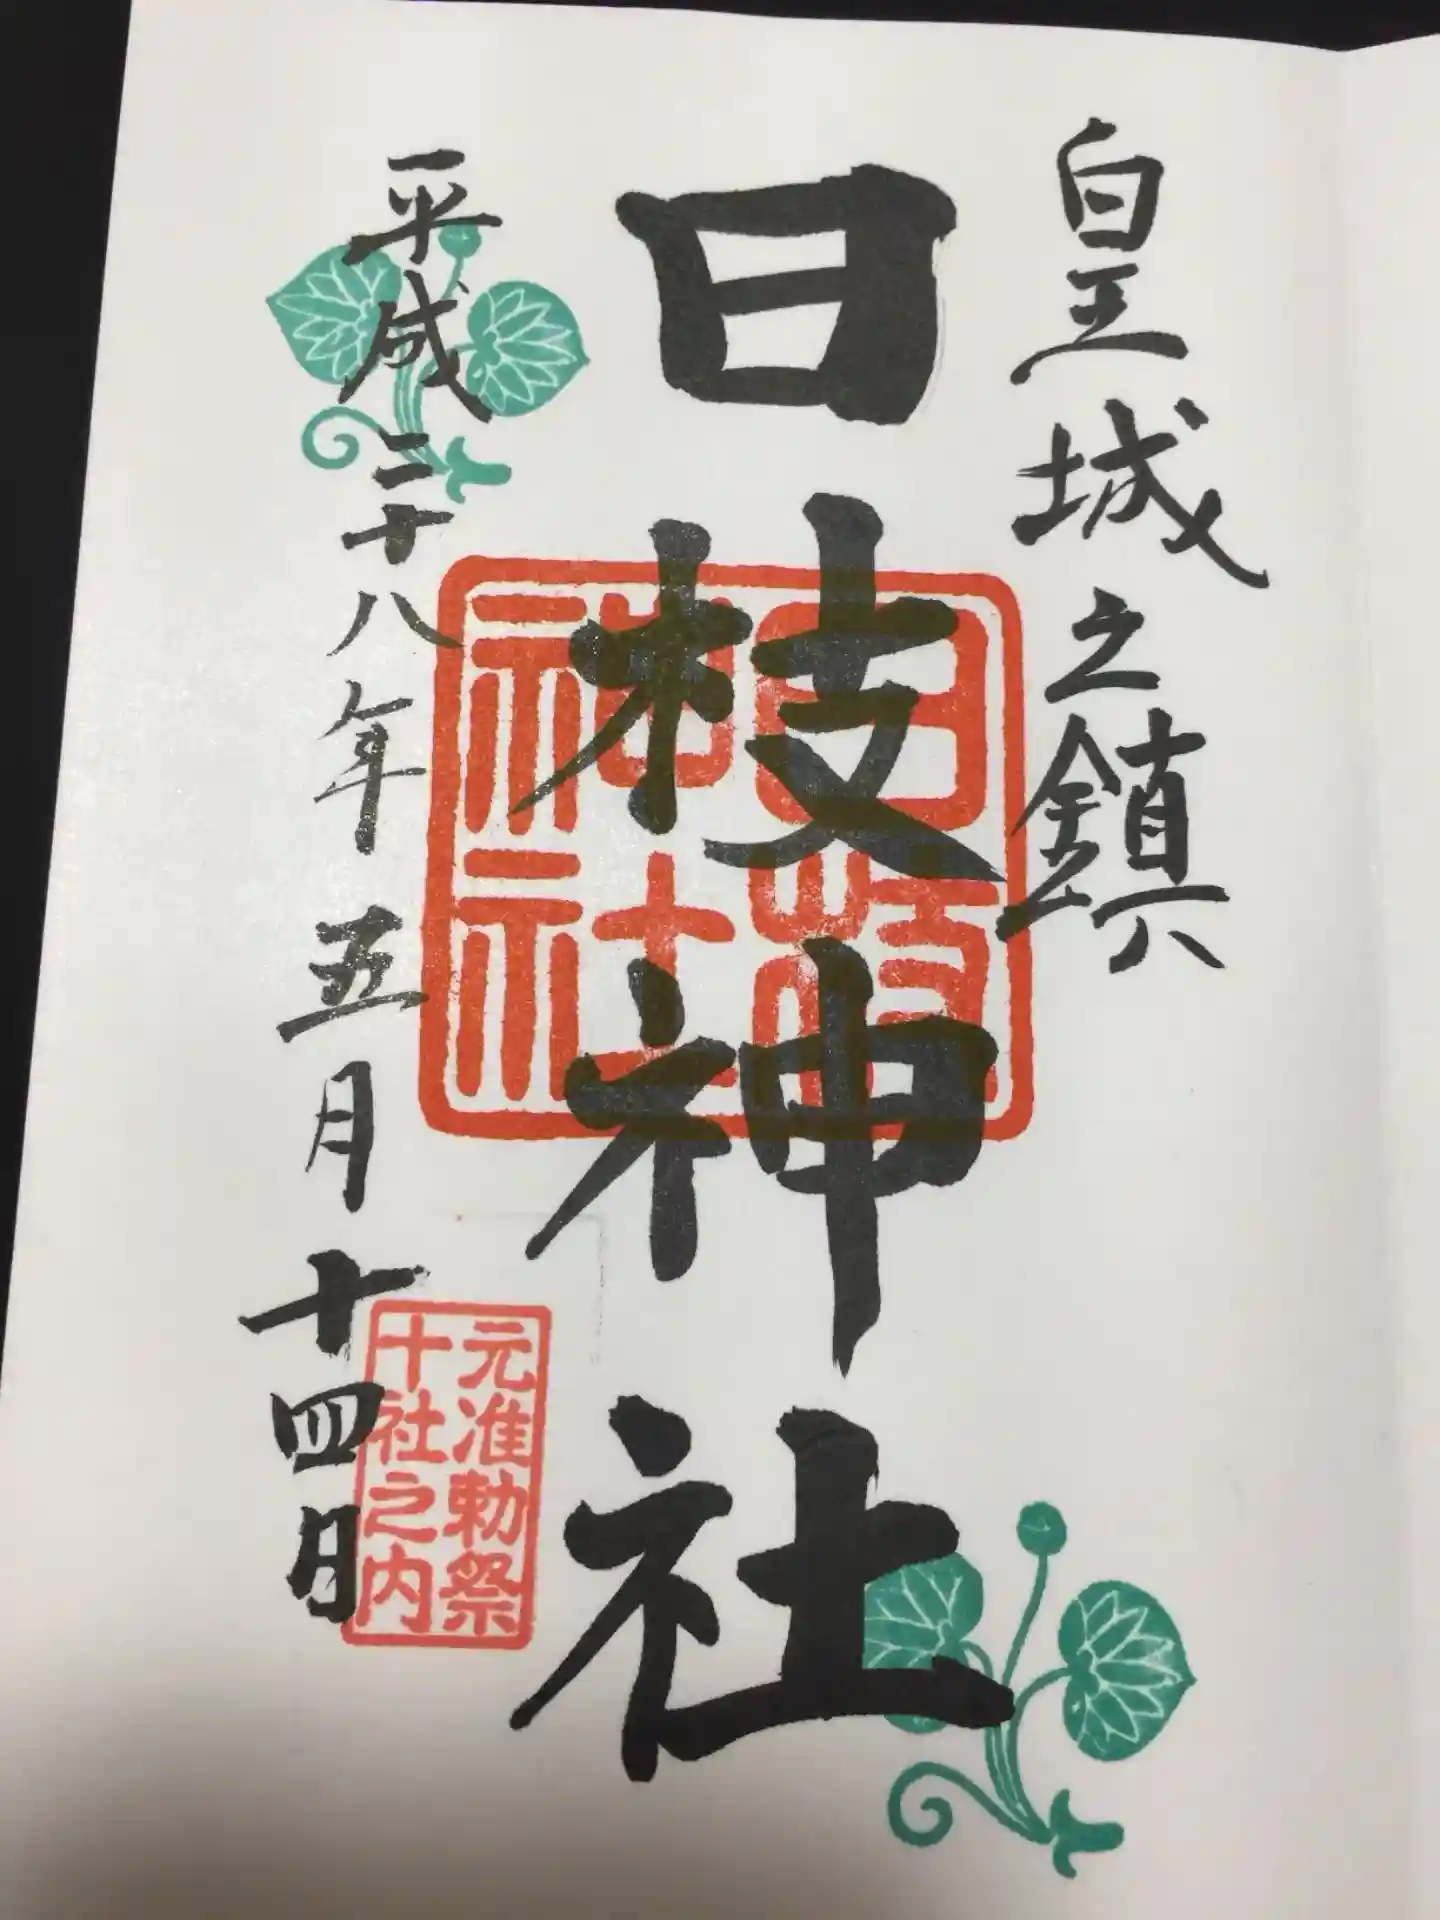 皇城之鎮
日枝神社
日枝
神社
平成二十八年五月十四日
元准勅祭
十社之内